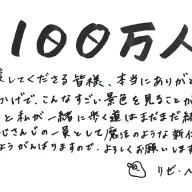 100万人
援してくださる皆様、本当にありが
かげで、こんなすごい景色を見ることが
と私が一緒に歩く道はまだまだ続
じさんじの一員として魔法のような新体
ようがんばりますので、よろしくお願いします
リゼ・ヘ